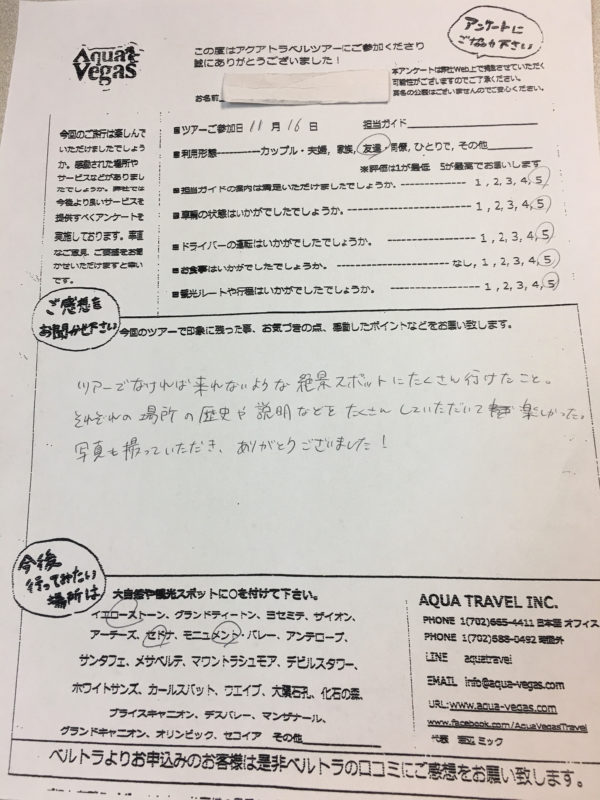 Aqua Vegas
この度はアクアトラベルツアーにご参加くださり
誠にありがとうございました！
アンケートに
ご協力下さい
本アンケートは弊社Web上で掲載させていただく
可能性がございますのでご了承ください。
真名の公表はございませんのでご安心ください。
お名前
今回のご旅行は楽しんで
いただけましたでしょう
か。感動された場所や
サービスなどがありまし
たでしょうか。弊社では
今後より良いサービスを
提供すべくアンケートを
実施しております。率直
なご意見、ご要望をお聞
かせいただけますと幸い
です。
■ツアーご参加日 11 月 16 日 担当ガイド
■利用形態-----------カップル・夫婦, 家族, 友達・同僚, ひとりで, その他
※評価は1が最低 5が最高でお願いします
■担当ガイドの案内は満足いただけましたでしょうか。---------------- 1 , 2, 3, 4, 5
■車輌の状態はいかがでしたでしょうか。---------------- 1 , 2, 3, 4, 5
■ドライバーの運転はいかがでしたでしょうか。---------------- 1 , 2, 3, 4, 5
■お食事はいかがでしたでしょうか。---------------- なし, 1 , 2, 3, 4, 5
■観光ルートや行程はいかがでしたでしょうか。---------------- 1 , 2, 3, 4, 5
ご感想を
お聞かせ下さい
今回のツアーで印象に残った事、お気づきの点、感動したポイントなどをお願い致します。
ツアーでなければ来れないような絶景スポットにたくさん行けたこと。
それぞれの場所の歴史や説明などとたくさんしていただいて楽しかった。
写真も撮っていただき、ありがとうございました！
今後
行ってみたい
場所は
大自然や観光スポットに○を付けて下さい。
イエローストーン、グランドティートン、ヨセミテ、ザイオン、
アーチーズ、セドナ、モニュメント・バレー、アンテロープ、
サンタフェ、メサベルデ、マウントラシュモア、デビルスタワー、
ホワイトサンズ、カールスバット、ウエイブ、大隕石孔、化石の森、
ブライスキャニオン、デスバレー、マンザナール、
グランドキャニオン、オリンピック、セコイア その他
AQUA TRAVEL INC.
PHONE 1(702)665-4411 日本語 オフィス
PHONE 1(702)588-0492 時間外
LINE aquatravel
EMAIL info@aqua-vegas.com
URL:www.aqua-vegas.com
www.facebook.com/AquaVegasTravel
代表 渡辺 ミック
ベルトラよりお申込みのお客様は是非ベルトラの口コミにご感想をお願い致します。